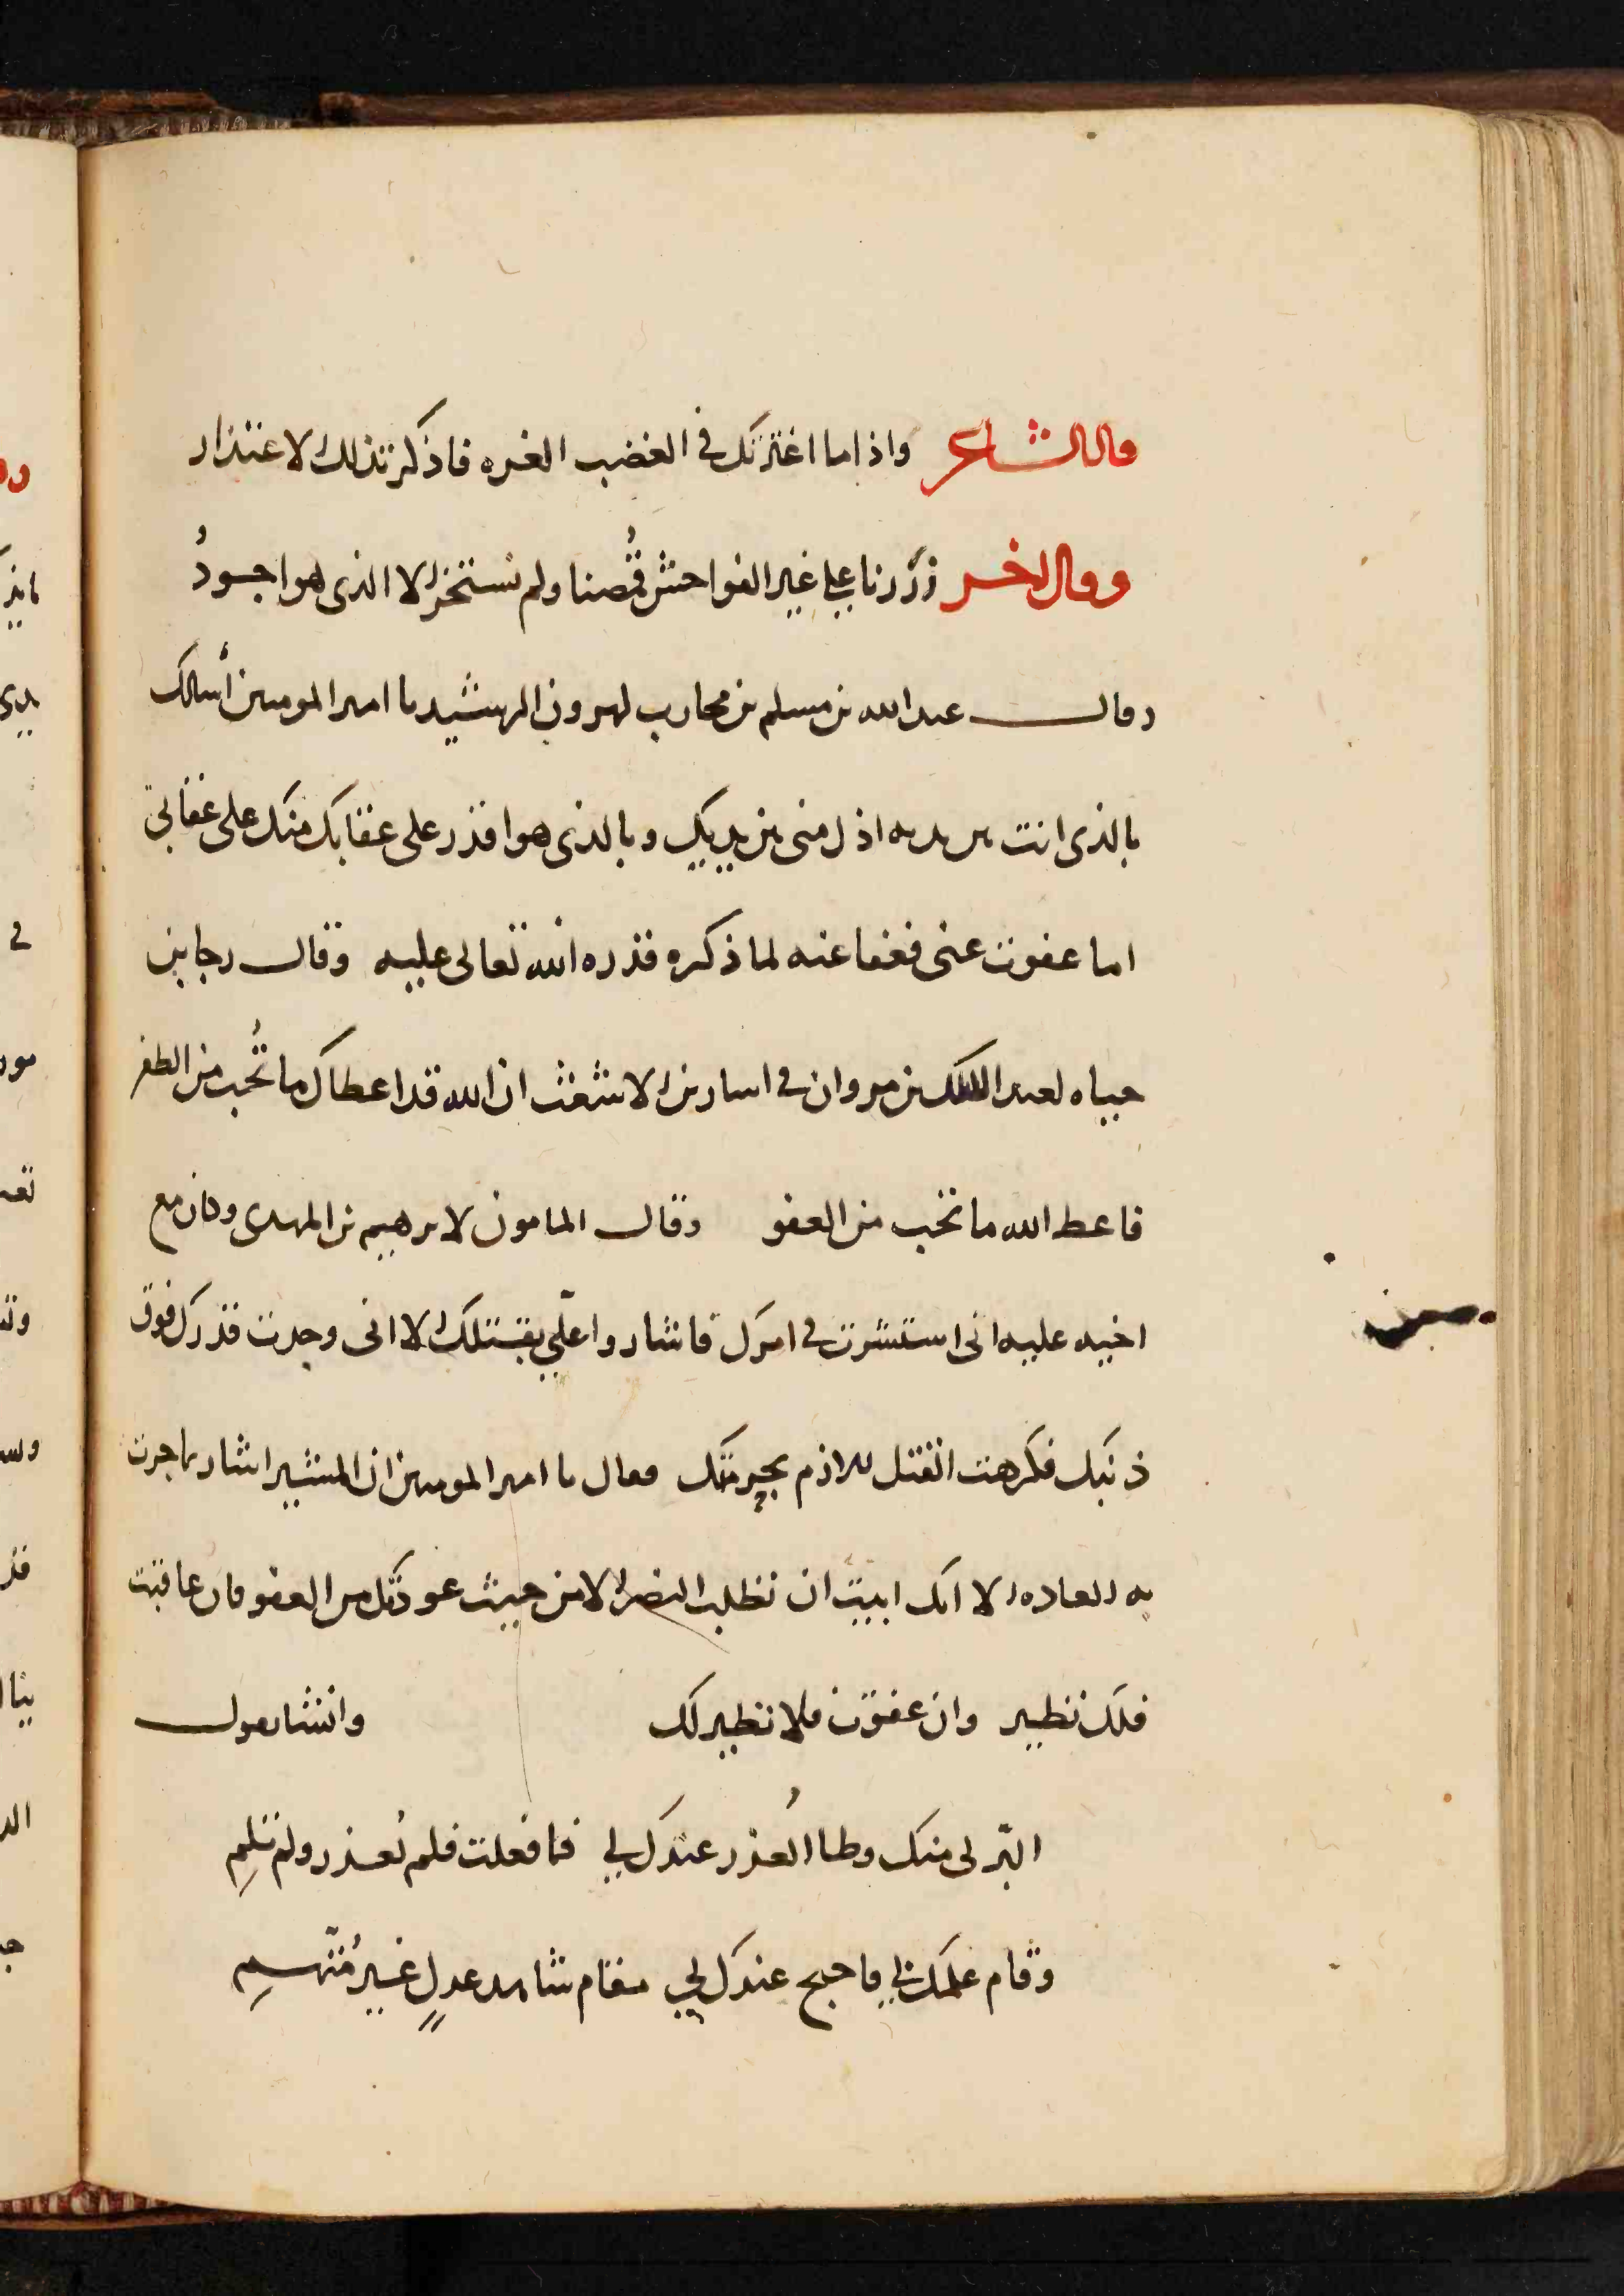 قال الشاعر واذا ما اعترتك في الغضب العزه فاذكر تذلل الاعتذار
وقال اخر زررنا على غير الفواحش قمصنا ولم نستجز الا الذى هو اجود
وقال عبد الله بن مسلم بن محارب لهرون الرشيد يا امير المومنين أسالك
بالذى انت بين يديه اذل منى بين يديك وبالذى هو اقدر على عقابك منك على عقابى
اما عفوت عنى فعفا عنه لما ذكره قدره الله تعالى عليه وقال رجا بن
حياه لعبد الملك بن مروان في اسارى بن الاشعث ان الله قد اعطاك ما تُحب من الظفر
فاعط الله ما تحب من العفو وقال المامون لابرهيم بن المهدى وكان مع
اخيه عليه انى استشرت في امرك فاشاروا علّي بقتلك الا انى وجدت قدرك فوق
ذنبك فكرهت القتل للازم بحرمتك فقال يا امير المومنين ان المشير اشار بما جرت
به العاده الا انك ابيت ان تطلب النصر الا من حيث عودتك من العفو فان عاقبت
فلك نظير وان عفوت فلا نظير لك وانشا يقول
البّر لى منك وطا العُذر عندك لي فما فعلت فلم تُعذر ولم تلمِ
وقام علمك بي فاحتج عندك لي مقام شاهد عدلٍ غير مُتّهمِ